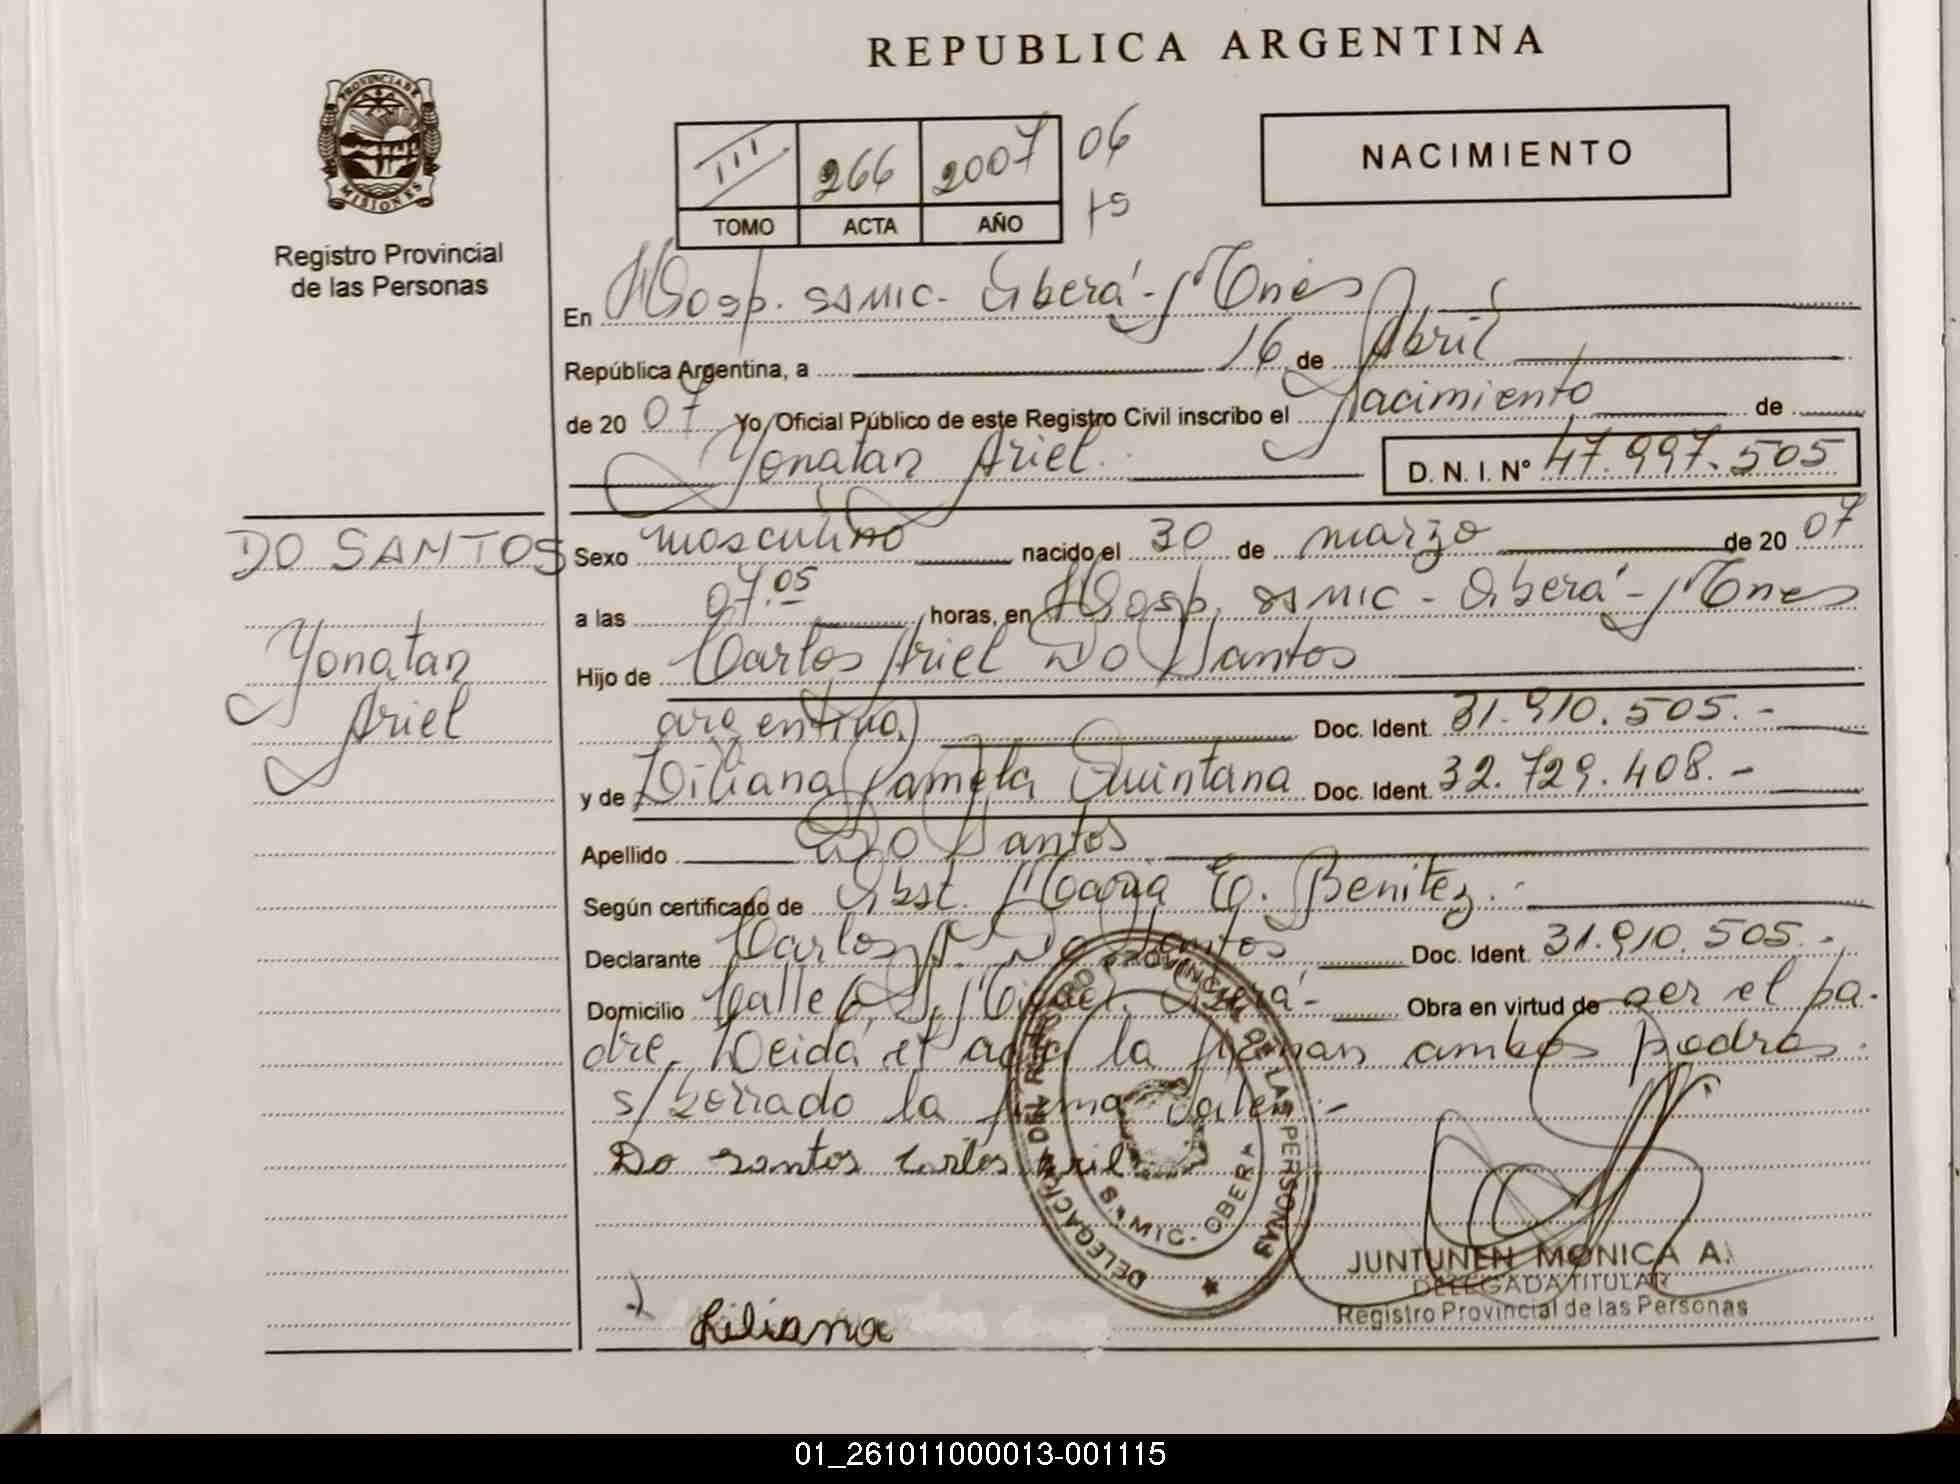 REPUBLICA ARGENTINA
PROVINCIA DE MISIONES
Registro Provincial
de las Personas
III 266 2007 06
TOMO ACTA AÑO
NACIMIENTO
En Hosp. SAMIC - Oberá - Mnes
República Argentina, a 16 de Abril
de 20 07 Yo Oficial Público de este Registro Civil inscribo el Nacimiento de
Yonatan Ariel. D. N. I. Nº 47.997.505
DO SANTOS
Yonatan
Ariel
Sexo masculino nacido el 30 de marzo de 20 07
a las 07.05 horas, en Hosp. SAMIC - Oberá - Mnes
Hijo de Carlos Ariel Do Santos
argentino) Doc. Ident. 31.910.505.-
y de Liliana Pamela Quintana Doc. Ident. 32.729.408.-
Apellido Do Santos
Según certificado de Obst. María E. Benitez.
Declarante Carlos A. Do Santos Doc. Ident. 31.910.505.-
Domicilio Calle Oberá - Obra en virtud de ser el pa-
dre. Leida el acta la firman ambos padres.
s/borrado la firma Vale. -
Do santos Carlos Ariel
DELEGACION DEL REGISTRO PROVINCIAL DE LAS PERSONAS
SAMIC - OBERA
JUNTUNEN MONICA A.
DELEGADA TITULAR
Registro Provincial de las Personas
Liliana
01_261011000013-001115